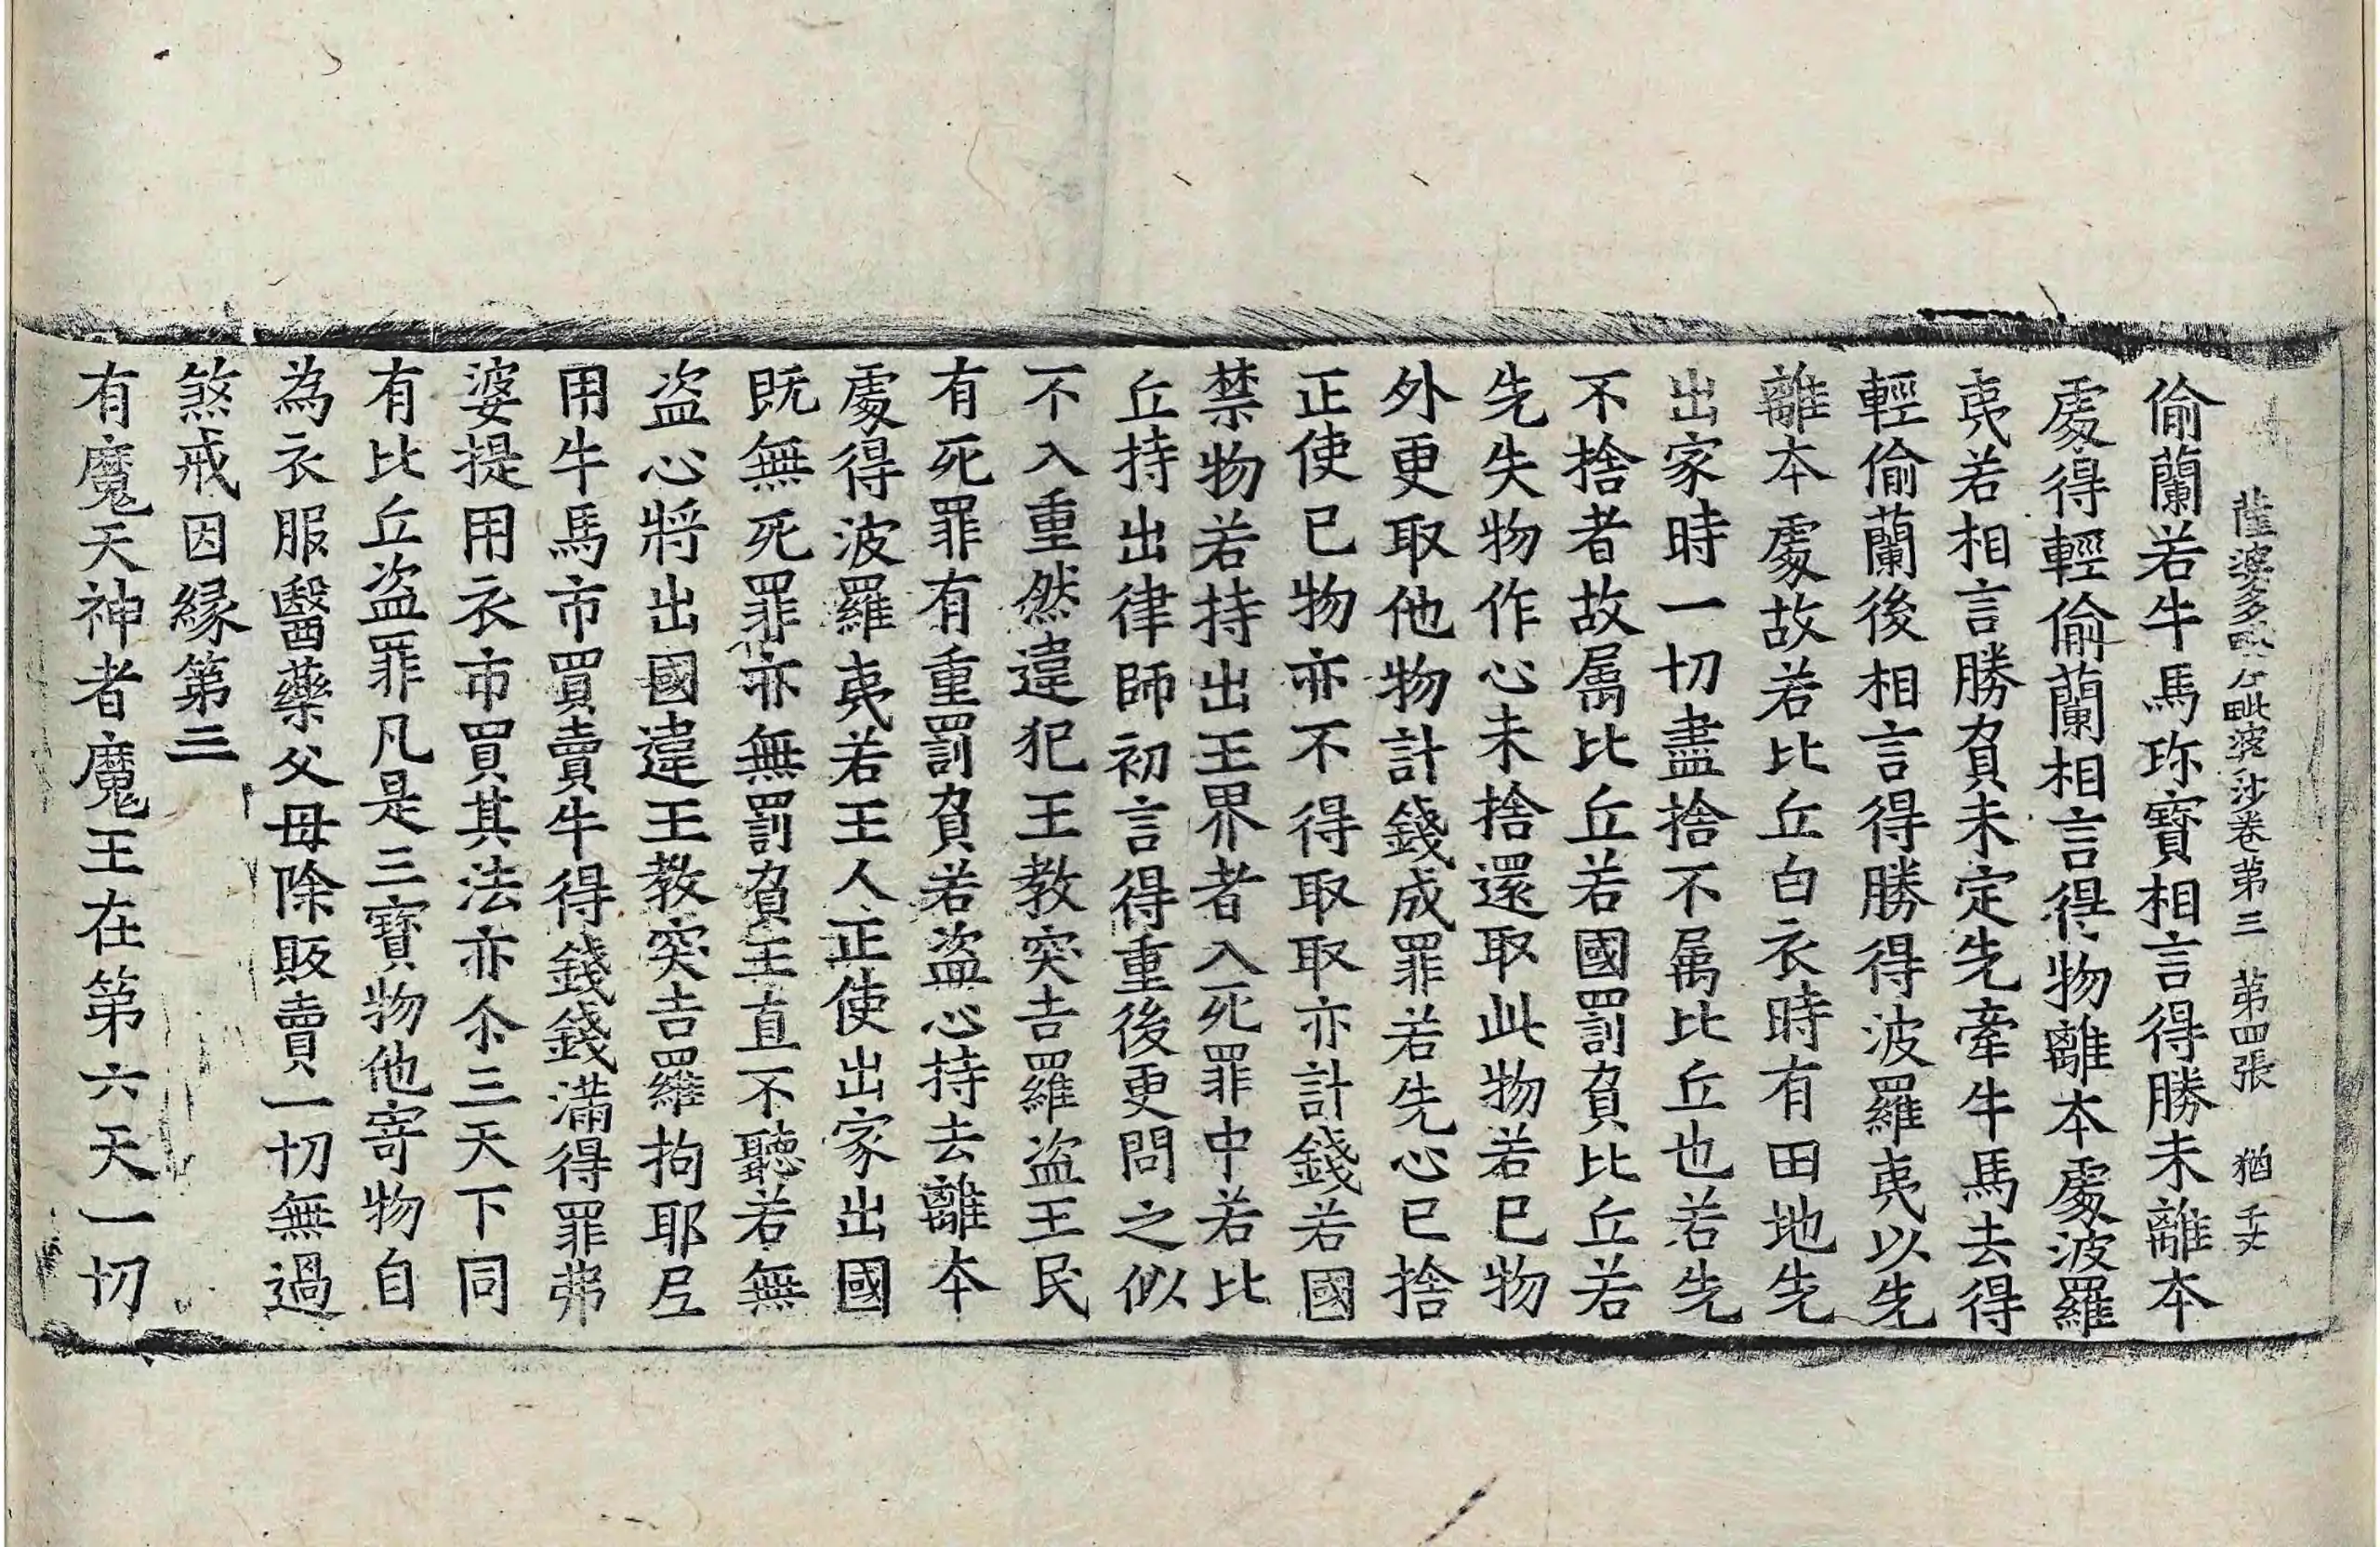 薩婆多毗尼毗婆沙卷第三 第四張 猶 千丈
偷蘭若牛馬珎寶相言得勝未離本
處得輕偷蘭相言得物離本處波羅
夷若相言勝負未定先牽牛馬去得
輕偷蘭後相言得勝得波羅夷以先
離本處故若比丘白衣時有田地先
出家時一切盡捨不属比丘也若先
不捨者故属比丘若國罰負比丘若
先失物作心未捨還取此物若已物
外更取他物計錢成罪若先心已捨
正使已物亦不得取取亦計錢若國
禁物若持出王界者入死罪中若比
丘持出律師初言得重後更問之似
不入重然違犯王教突吉羅盗王民
有死罪有重罰負若盗心持去離本
處得波羅夷若王人正使出家出國
既無死罪亦無罰負王直不聽若無
盗心將出國違王教突吉羅拘耶尼
用牛馬市買賣牛得錢錢滿得罪弗
婆提用衣市買其法亦尒三天下同
有比丘盗罪凡是三寶物他寄物自
為衣服醫藥父母除販賣一切無過
煞戒因縁第三
有魔天神者魔王在第六天一切